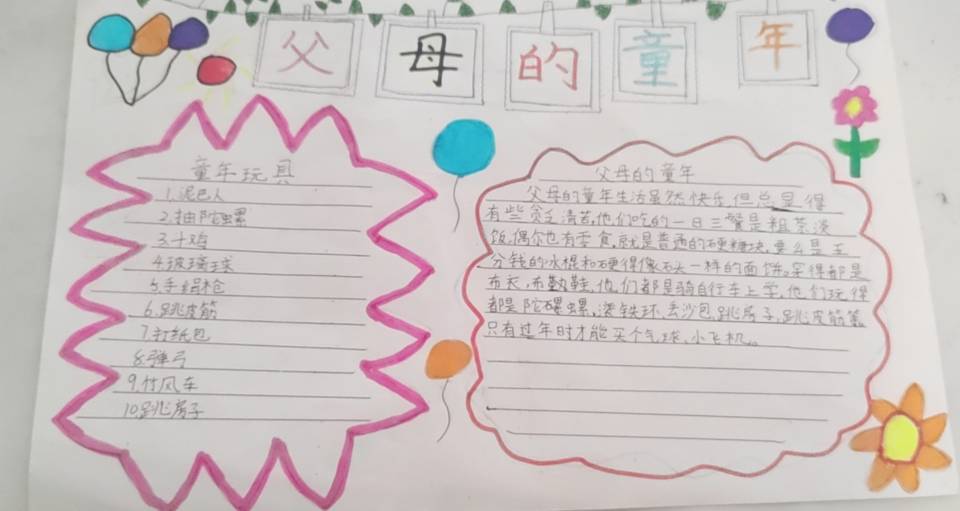 父母的童年
童年玩具
1.泥巴人
2.抽陀螺
3.斗鸡
4.玻璃球
5.手绢枪
6.跳皮筋
7.打纸包
8.弹弓
9.竹风车
10.跳房子
父母的童年
父母的童年生活虽然快乐,但总显得
有些贫乏清苦,他们吃的一日三餐是粗茶淡
饭,偶尔也有零食,就是普通的硬糖块,要么是五
分钱的冰棍和硬得像石头一样的面饼。穿得都是
布衣,布鞋,他们都是骑自行车上学,他们玩得
都是陀螺,滚铁环,丢沙包,跳房子,跳皮筋等
只有过年时才能买个气球,小飞机。